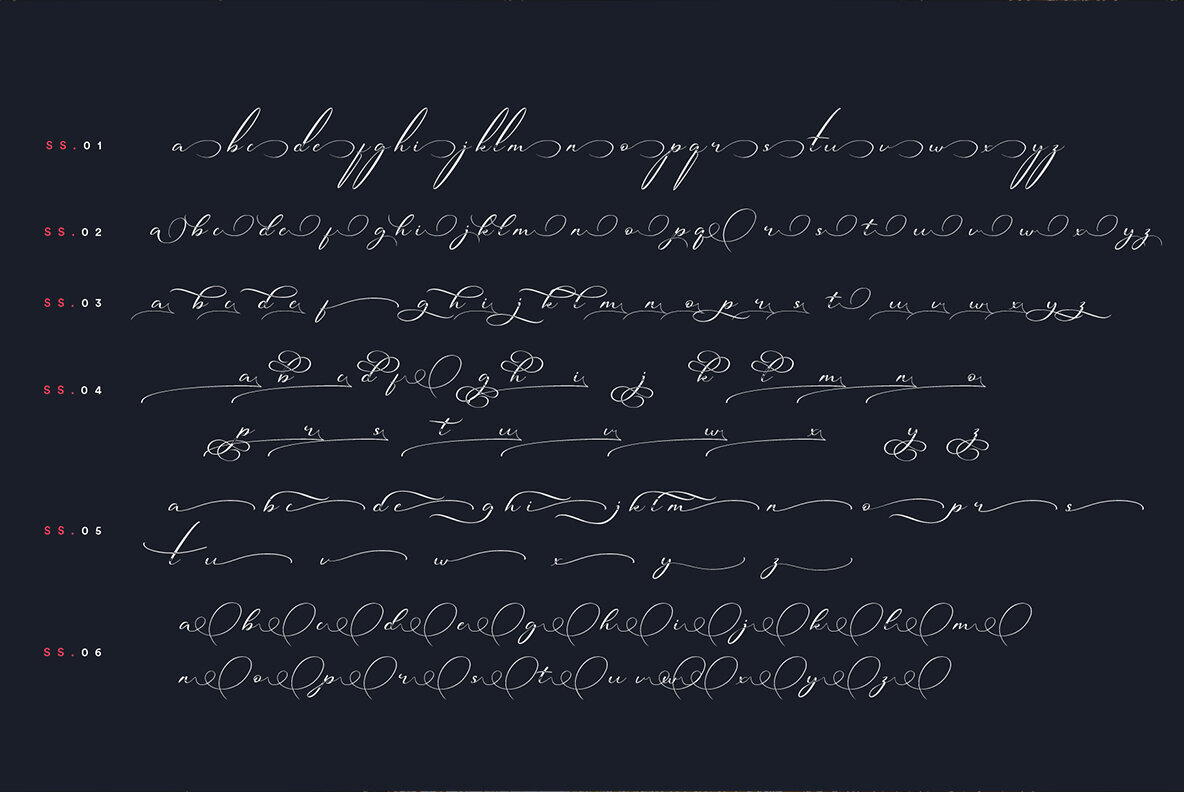 SS.01 a b c d e f g h i j k l m n o p q r s t u v w x y z
SS.02 a b c d e f g h i j k l m n o p q r s t u v w x y z
SS.03 a b c d e f g h i j k l m n o p r s t u v w x y z
SS.04 a b c d f g h i j k l m n o
p r s t u v w x y z
SS.05 a b c d e g h i j k l m n o p r s
t u v w x y z
SS.06 a b c d e g h i j k l m
n o p r s t u v w x y z